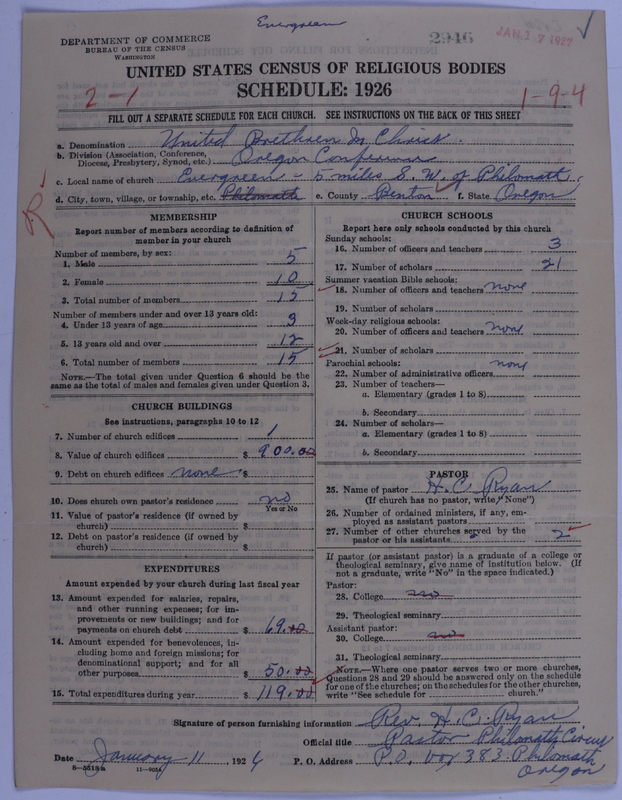 Evergreen
2946
JAN 17 1927
DEPARTMENT OF COMMERCE
BUREAU OF THE CENSUS
WASHINGTON
UNITED STATES CENSUS OF RELIGIOUS BODIES
SCHEDULE: 1926
2-1
1-9-4
FILL OUT A SEPARATE SCHEDULE FOR EACH CHURCH. SEE INSTRUCTIONS ON THE BACK OF THIS SHEET
a. Denomination United Brethren In Christ.
b. Division (Association, Conference, Diocese, Presbytery, Synod, etc.) Oregon Conference
c. Local name of church Evergreen - 5 miles S. W. of Philomath.
d. City, town, village, or township, etc. Philomath e. County Benton f. State Oregon
MEMBERSHIP
Report number of members according to definition of
member in your church
Number of members, by sex:
1. Male 5
2. Female 10
3. Total number of members 15
Number of members under and over 13 years old:
4. Under 13 years of age 3
5. 13 years old and over 12
6. Total number of members 15
NOTE.—The total given under Question 6 should be the
same as the total of males and females given under Question 3.
CHURCH BUILDINGS
See instructions, paragraphs 10 to 12
7. Number of church edifices 1
8. Value of church edifices $ 900.00
9. Debt on church edifices none $
10. Does church own pastor's residence no
Yes or No
11. Value of pastor's residence (if owned by
church) $
12. Debt on pastor's residence (if owned by
church) $
EXPENDITURES
Amount expended by your church during last fiscal year
13. Amount expended for salaries, repairs,
and other running expenses; for im-
provements or new buildings; and for
payments on church debt $ 69.00
14. Amount expended for benevolences, in-
cluding home and foreign missions; for
denominational support; and for all
other purposes $ 50.00
15. Total expenditures during year $ 119.00
CHURCH SCHOOLS
Report here only schools conducted by this church
Sunday schools:
16. Number of officers and teachers 3
17. Number of scholars 21
Summer vacation Bible schools:
18. Number of officers and teachers none
19. Number of scholars
Week-day religious schools:
20. Number of officers and teachers none
21. Number of scholars
Parochial schools: none
22. Number of administrative officers
23. Number of teachers—
a. Elementary (grades 1 to 8)
b. Secondary
24. Number of scholars—
a. Elementary (grades 1 to 8)
b. Secondary
PASTOR
25. Name of pastor H. C. Ryan
(If church has no pastor, write "None")
26. Number of ordained ministers, if any, em-
ployed as assistant pastors
27. Number of other churches served by the
pastor or his assistants 2
If pastor (or assistant pastor) is a graduate of a college or
theological seminary, give name of institution below. (If
not a graduate, write "No" in the space indicated.)
Pastor:
28. College no
29. Theological seminary
Assistant pastor:
30. College no
31. Theological seminary
NOTE.—Where one pastor serves two or more churches,
Questions 28 and 29 should be answered only on the schedule
for one of the churches; on the schedules for the other churches,
write "See schedule for ............ church."
Signature of person furnishing information Rev. H. C. Ryan
Official title Pastor Philomath Circuit
Date January 11, 1926 P. O. Address P.O. box 383. Philomath
Oregon
8-5518a 11-9054